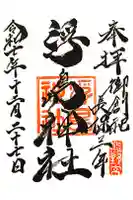 奉拝
御創祀
長徳二年
浮島神社
令和七年十二月二十七日